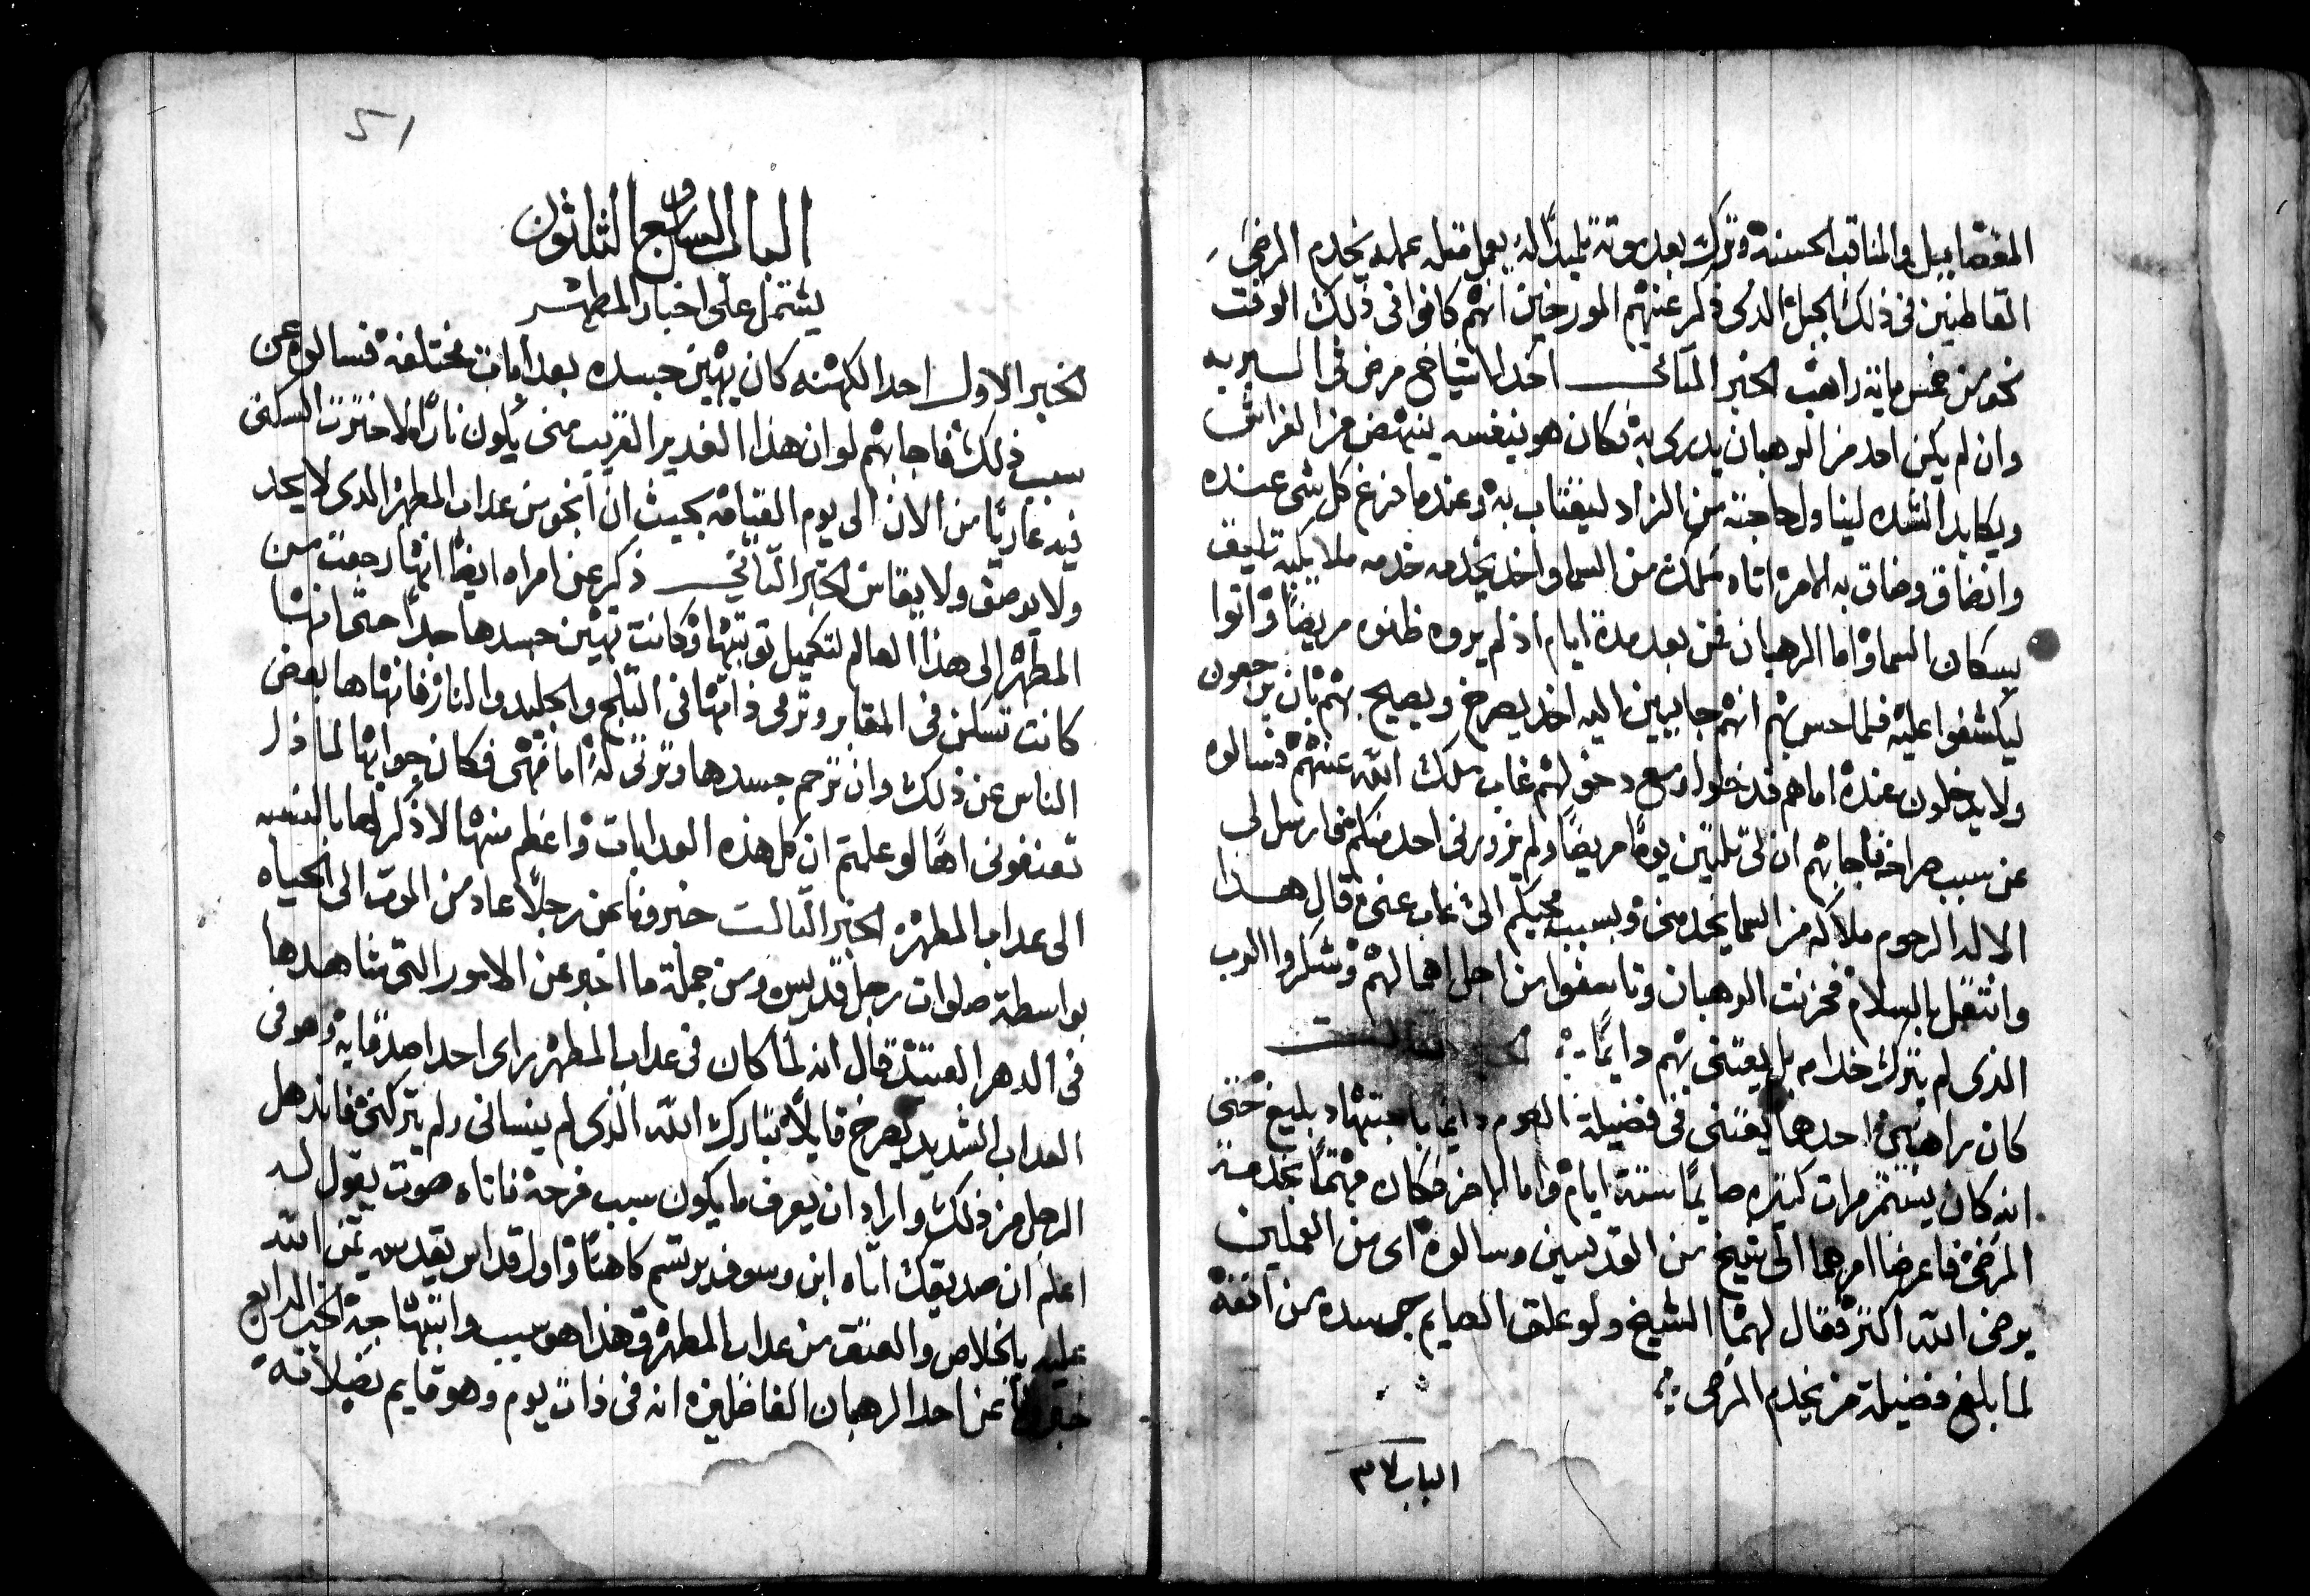 الفضايل والمناقب الحسنة وترك بعد موته تلميذًا له يعمل مثله عمله يخدم المرضى
القاطنين في ذلك الجبل الذي ذكر عنهم المورخين انهم كانوا في ذلك الوقت
نحو من خمس ماية راهب الخبر الثاني احد الاشياخ مرض في البريه
وان لم يكن احد من الرهبان يدري به فكان هو بنفسه ينهض من الفراش
ويكابد الشده ليناول حاجته من الزاد ليقتات به وعندما فرغ كل شي عنده
وانضاق وضاق به الامر اتاه ملاك من السما واخذ يخدمه خدمه ملايكيه تليق
بسكان السما واما الرهبان فمن بعد مدة ايام اذ لم يروه ظنوه مريضًا واتوا
ليكشفوا عليه فلما حس بهم انهم جايين اليه اخذ يصرخ ويصيح بهم بان يرجعون
ولا يدخلون عنده اما هم فدخلوا ومع دخولهم غاب ملك الله عنهم فسالوه
عن سبب صراخه فاجابهم ان لي ثلثين يومًا مريضًا ولم يزورني احد منكم فارسل لي
الاله الرحوم ملاكه من السما يخدمني وبسبب مجيكم الي غاب عني قال هذا
وانتقل بالسلام فحزنت الرهبان وتاسفوا من اجل اهمالهم وشكروا الرب
الذي لم يترك خدامه بل يعتني بهم دايمًا الخبر الثالث
كان راهبين احدهما يعتني في فضيلة الصوم دايمًا باجتهاد بليغ حتى
انه كان يستمر مرات كثيره صايمًا ستة ايام واما الاخر فكان مهتمًا بخدمة
المرضى فاعرضا امرهما الى شيخ من القديسين وسالوه اي من العملين
يرضي الله اكثر فقال لهما الشيخ ولو علق الصايم جسده من انفه
لما بلغ فضيلة من يخدم المرضى
الباب ٣٧
51
الباب السابع والثلثون
يشتمل على اخبار المطهر
الخبر الاول احد الكهنه كان يهين جسده بعد امات مختلفة فسالوه عن
سبب ذلك فاجابهم لو ان هذا الغدير القريب مني يكون نارًا لاخترت السكنى
فيه عاريًا من الان الى يوم القيامه بحيث ان انجو من عذاب المطهر الذي لا يحد
ولا يوصف ولا يقاس الخبر الثاني ذكر عن امراه ايضًا انها رجعت من
المطهر الى هذا العالم لتكميل توبتها وكانت تهين جسدها جدًا حتى انها
كانت تسكن في المقابر وترمي ذاتها في الثلج والجليد والنار فانهاها بعض
الناس عن ذلك وان ترحم جسدها وترثي له اما هي فكان جوابها لماذا
تعنفوني اهًا لو علمتم ان كل هذه العذابات واعظم منها لا ذكر لها بالنسبه
الى عذاب المطهر الخبر الثالث خبرونا عن رجلًا عاد من الموت الى الحياه
بواسطة صلوات رجل قديس ومن جملة ما اخبر عن الامور التي شاهدها
في الدهر العتيد قال انه لما كان في عذاب المطهر راى احد اصدقايه وهو في
العذاب الشديد يصرخ قايلًا تبارك الله الذي لم ينساني ولم يتركني فانذهل
الرجل من ذلك واراد ان يعرف ما يكون سبب فرحه فاتاه صوت يقول له
اعلم ان صديقك اتاه ابن وسوف يرتسم كاهنًا واول قداس يقدسه يمن الله
عليه بالخلاص والعتق من عذاب المطهر وهذا هو سبب وابتهاجه الخبر الرابع
خبرونا عن احد الرهبان الفاضلين انه في ذات يوم وهو قايم بصلاته